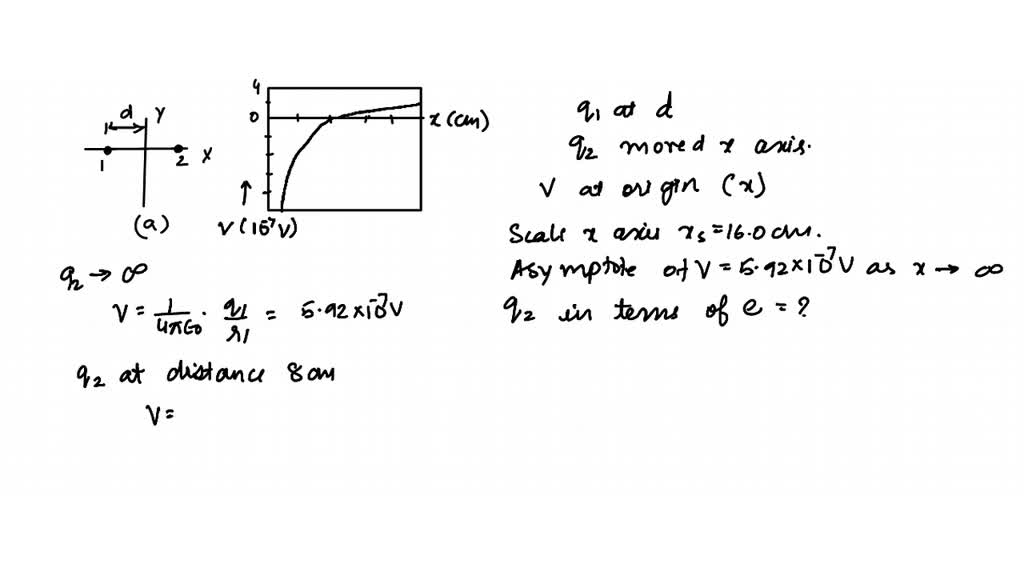 d
Y
1
2
X
(a)
4
0
x (cm)
V (10⁻⁷ V)
q₁ at d
q₂ moved x axis.
V at origin (x)
Scale x axis xₛ = 16.0 cm.
Asymptote of V = 5.92 × 10⁻⁷ V as x → ∞
q₂ in terms of e = ?
q₂ → ∞
V = 1/4πε₀ · q₁/r₁ = 5.92 × 10⁻⁷ V
q₂ at distance 8 cm
V =